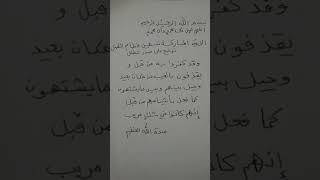 بسم الله الرحمن الرحيم
اللهم صل على محمد وآل محمد
الآية المباركة
وقد كفروا به من قبل و
يقذفون بالغيب من مكان بعيد
وحيل بينهم وبين ما يشتهون
كما فعل بأشياعهم من قبل
إنهم كانوا في شك مريب
صدق الله العظيم